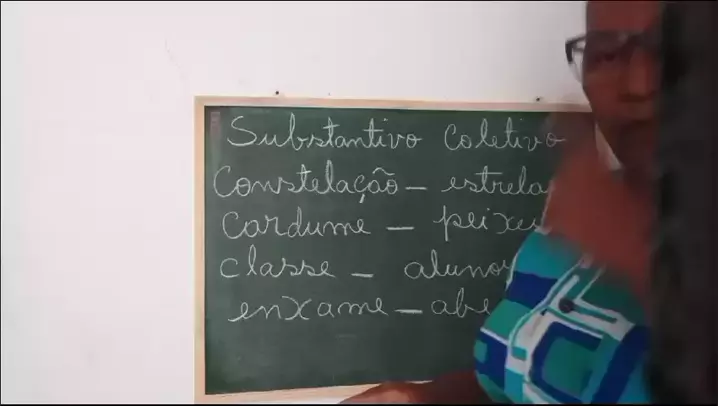 Substantivo Coletivo
Constelação - estrela
Cardume - peixe
classe - alunos
enxame - abe